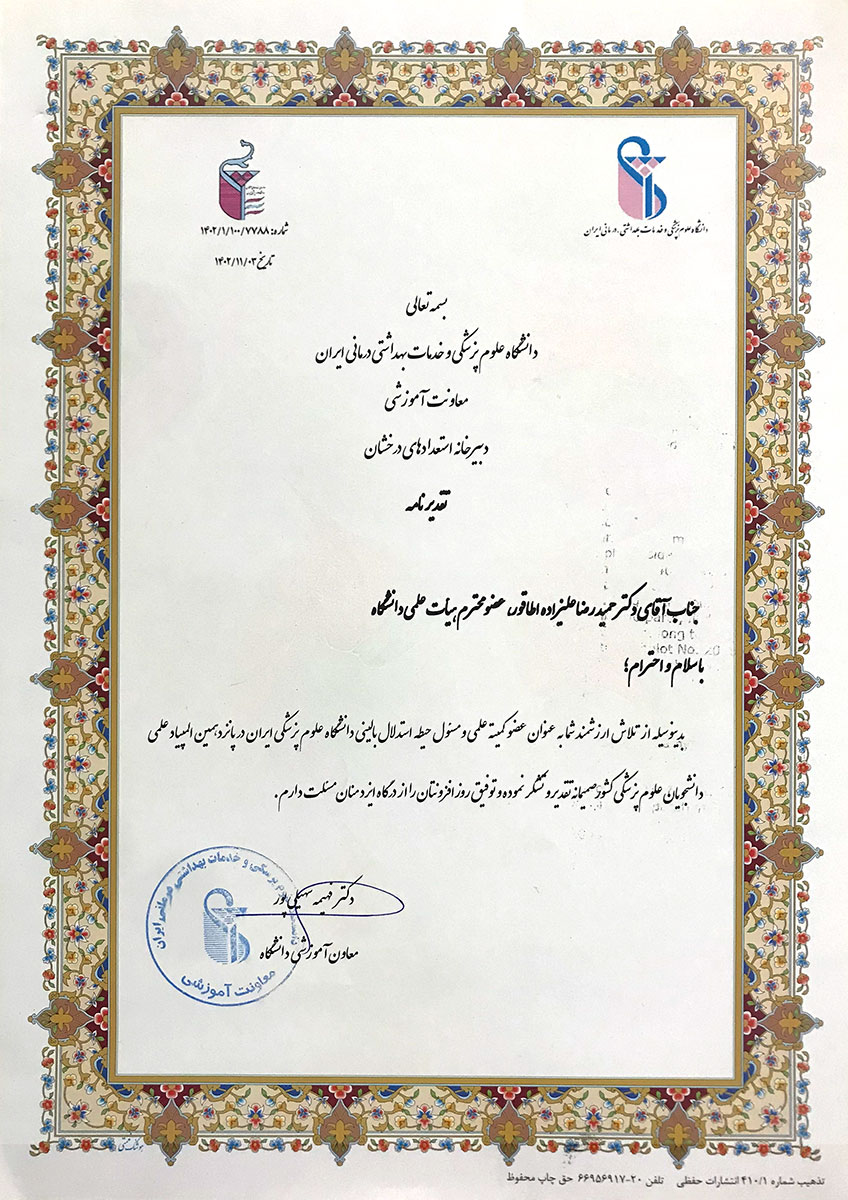 دانشگاه علوم پزشکی و خدمات بهداشتی، درمانی ایران
شماره: ۱۴۰۲/۱/۱۰۰/۷۷۸۸
تاریخ ۱۴۰۲/۱۱/۰۳
بسمه تعالی
دانشگاه علوم پزشکی و خدمات بهداشتی درمانی ایران
معاونت آموزشی
دبیرخانه استعدادهای درخشان
تقدیرنامه
جناب آقای دکتر حمیدرضا علیزاده اطاقور، عضو محترم هیات علمی دانشگاه
با سلام و احترام؛
بدینوسیله از تلاش ارزشمند شما به عنوان عضو کمیته علمی و مسئول حیطه استدلال بالینی دانشگاه علوم پزشکی ایران در پانزدهمین المپیاد علمی
دانشجویان علوم پزشکی کشور صمیمانه تقدیر و تشکر نموده و توفیق روزافزونتان را از درگاه ایزد منان مسئلت دارم.
دکتر فهیمه سهیلی پور
معاون آموزشی دانشگاه
علوم پزشکی و خدمات بهداشتی درمانی ایران
معاونت آموزشی
تذهیب شماره ۴۱۰/۱ انتشارات حفظی تلفن ۲۰-۶۶۹۵۶۹۱۷ حق چاپ محفوظ